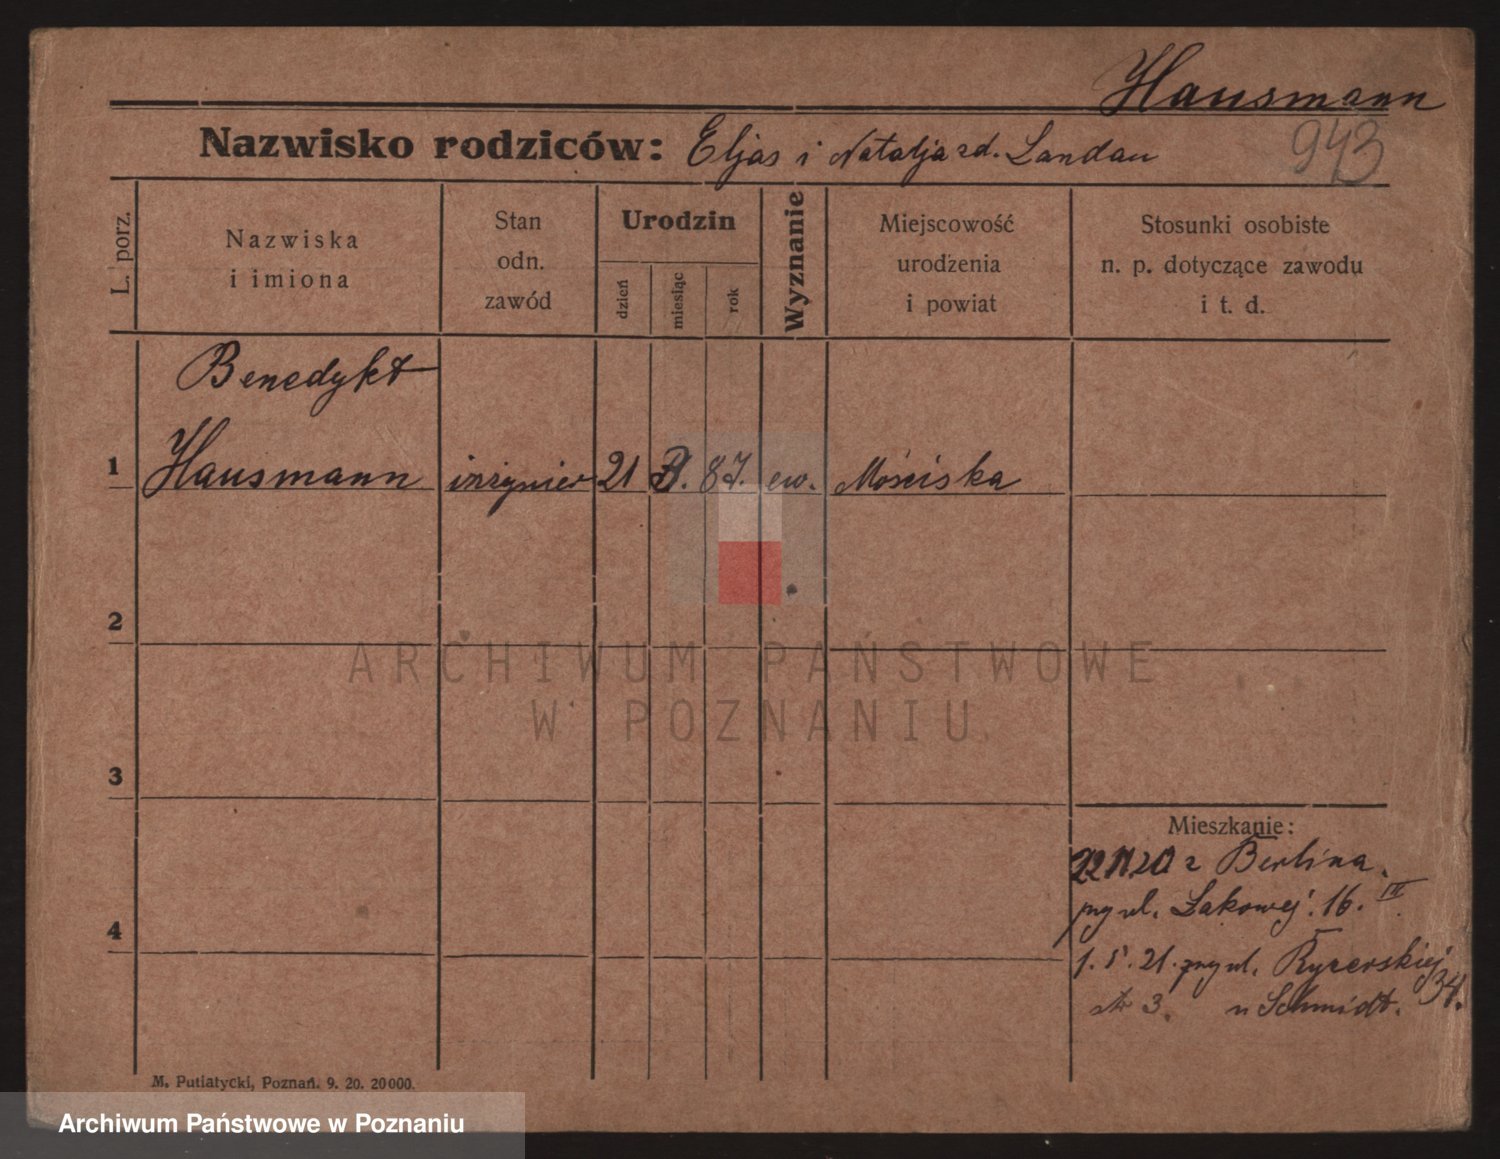 Hausmann
943
Nazwisko rodziców: Eljas i Natalja zd. Landau
L. porz.
Nazwiska
i imiona
Stan
odn.
zawód
Urodzin
dzień
miesiąc
rok
Wyznanie
Miejscowość
urodzenia
i powiat
Stosunki osobiste
n. p. dotyczące zawodu
i t. d.
Benedykt
1 Hausmann inżynier 21 87. ew. Mościska
2
3
4
Mieszkanie:
22 11 20 z Berlina.
przy ul. Łąkowej. 16. III
1. 5. 21. przy ul. Rycerskiej 34.
3. u Schmidt.
M. Putiatycki, Poznań. 9. 20. 20000.
ARCHIWUM PAŃSTWOWE
W POZNANIU
Archiwum Państwowe w Poznaniu